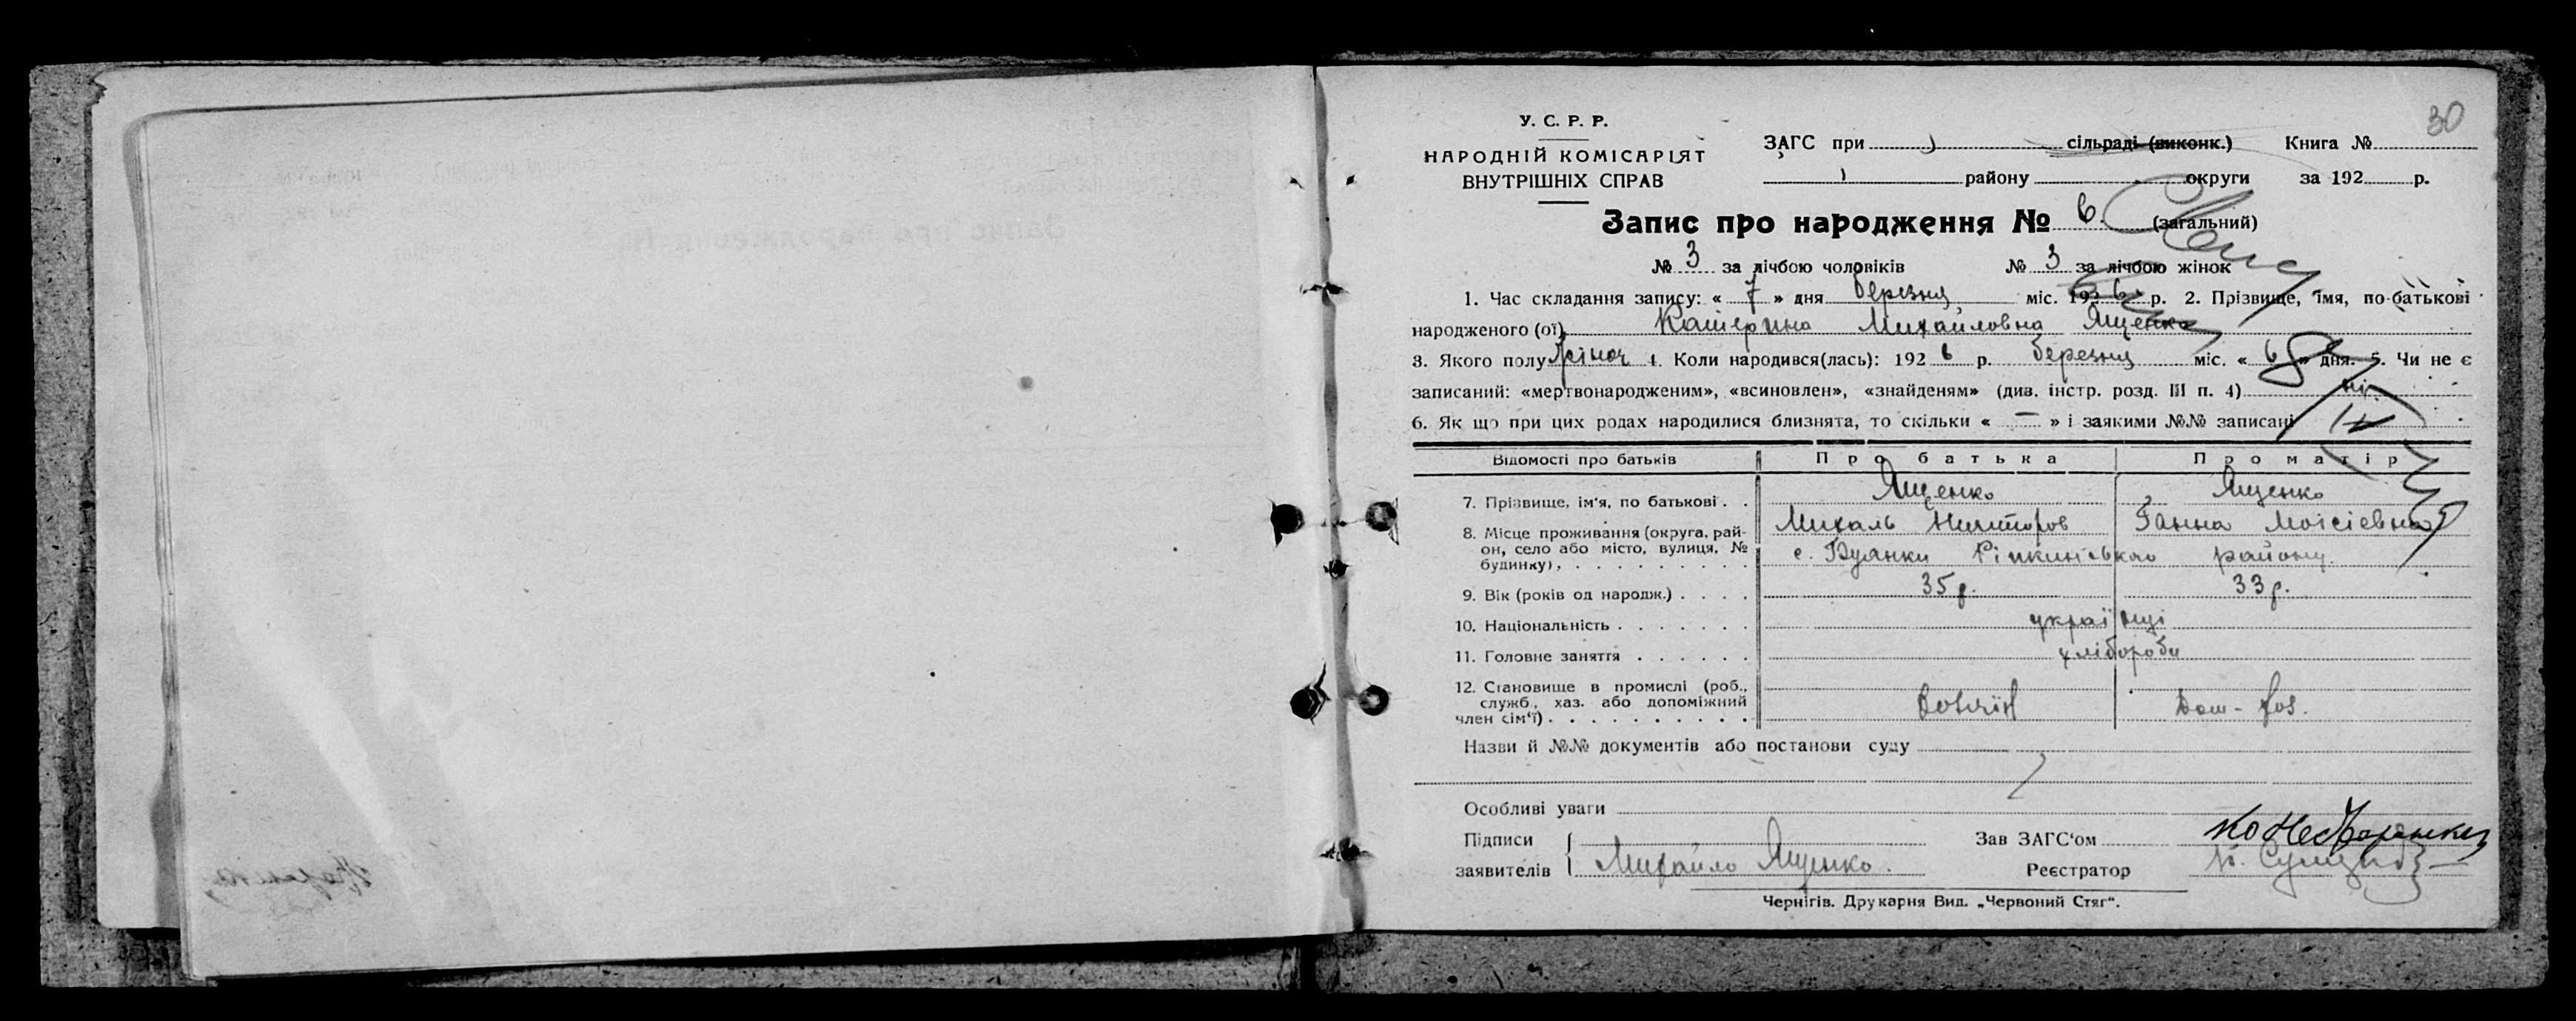 30
У. С. Р. Р.
НАРОДНІЙ КОМІСАРІЯТ
ВНУТРІШНІХ СПРАВ
ЗАГС при сільраді (виконк.) Книга №
району округи за 192 р.
Запис про народження № 6. (загальний)
№ 3 за лічбою чоловіків № 3 за лічбою жінок
1. Час складання запису: « 7 » дня березня міс. 1926 р. 2. Прізвище, їмя, по-батькові
народженого (ої) Катерина Михайловна Ященко
3. Якого полу жіноч 4. Коли народився(лась): 1926 р. березня міс. « 6 » дня. 5. Чи не є
записаний: «мертвонародженим», «всиновлен», «знайденям» (див. інстр. розд. III п. 4) ні
6. Як що при цих родах народилися близнята, то скільки « — » і заякими №№ записані
Відомості про батьків Про батька Про матір
7. Прізвище, ім'я, по батькові . . Ященко Ященко
Михаль Ничипоров Ганна Моісіевна
8. Місце проживання (округа, рай-
он, село або місто, вулиця, №
будинку) . . . . . . . . . с. Буянки Ріпкинського району
9. Вік (років од народж.) . . . . 35 р. 33 р.
10. Національність . . . . . . . українці
11. Головне заняття . . . . . . хлібороби
12. Становище в промислі (роб.,
служб, хаз. або допоміжний
член сім'ї) . . . . . . . . . . Дом-
Назви й №№ документів або постанови суду
Особливі уваги
Підписи
заявителів Михайло Ященко.
Зав ЗАГС'ом
Реєстратор
Чернігів. Друкарня Вид. „Червоний Стяг".